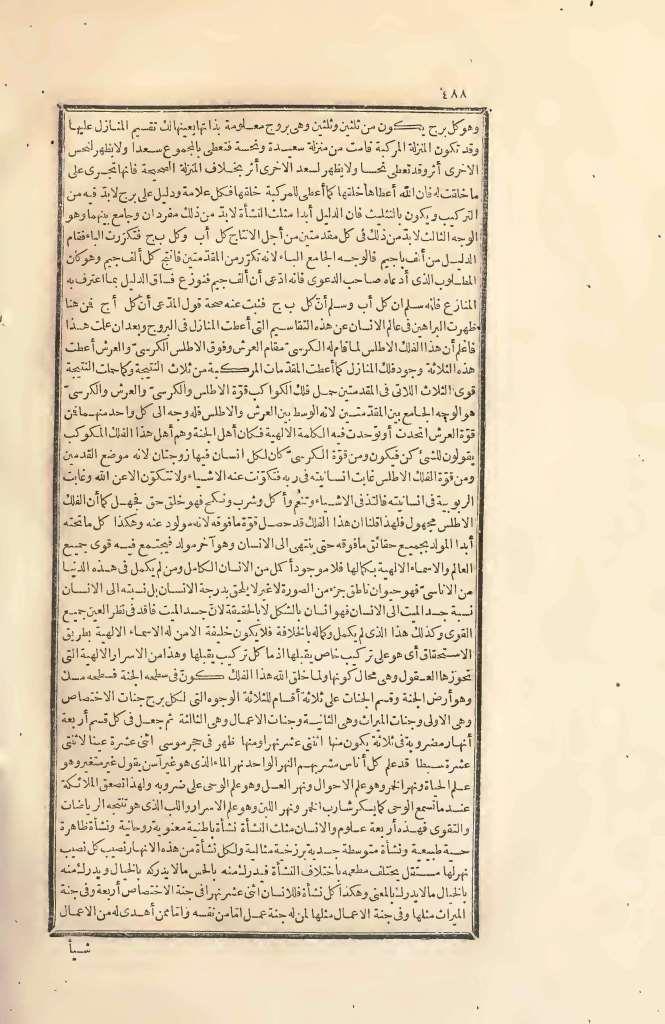 ٤٨٨
وهو كل برج يكون من ثلثين وثلثين وهى بروج معلومة بذاتها بعينها لك تقسيم المنازل عليها
وقد تكون المنزلة المركبة قامت من منزلة سعيدة ونحسة فتعطى بالمجموع سعدا ولا يظهر لنحس
الاخرى أثر وقد تعطى نحسا ولا يظهر لسعد الاخرى أثر بخلاف المنزلة الصحيحة فانها تجرى على
ما خلقت له فان الله أعطاها خلقها كما أعطى للمركبة خلقها فكل علامة ودليل على برج لابد فيه من
التركيب ويكون بالتثليث فان الدليل أبدا مثلث النشأة لابد من ذلك مفردان وجامع بينهما وهو
الوجه الثالث لابد من ذلك فى كل مقدمتين من أجل الانتاج كل أب وكل ب ج فتكررت الباء فقام
الدليل من ألف باجيم فالوجه الجامع الباء لانه تكرر من المقدمتين فانتج كل ألف جيم وهو كان
المطلوب الذى أدعاه صاحب الدعوى فانه ادعى أن ألف جيم فنوزع فساق الدليل بما اعترف به
المنازع فانه سلم ان كل أب وسلم أن كل ب ج فثبت عنه صحة قول المدعى أن كل أج فمن هنا
ظهرت البراهين فى عالم الانسان عن هذه التقاسيم التى أعطت المنازل فى البروج وبعد ان علمت هذا
فاعلم أن هذا الفلك الاطلس لما قام له الكرسى مقام العرش وفوق الاطلس الكرسى والعرش أعطت
هذه الثلاثة وجود فلك المنازل كما أعطت المقدمات المركبة من ثلاث النتيجة وكما جاءت النتيجة
قوى الثلاث اللاتى فى المقدمتين حمل فلك الكواكب قوة الاطلس والكرسى والعرش والكرسى
هو الوجه الجامع بين المقدمتين لانه الوسط بين العرش والاطلس فله وجه الى كل واحد منهما فمن
قوة العرش اتحدت أو توحدت فيه الكلمة الالهية فكان أهل الجنة وهم أهل هذا الفلك المكوكب
يقولون للشئ كن فيكون ومن قوة الكرسى كان لكل انسان فيها زوجتان لانه موضع القدمين
ومن قوة الفلك الاطلس غابت انسانيته فى ربه فتكونت عنه الاشياء ولا تتكون الا عن الله وغابت
الربوبية فى انسانيته فالتذ فى الاشياء وتنعم وأكل وشرب ونكح فهو خلق حق فجهل كما أن الفلك
الاطلس مجهول فلهذا قلنا ان هذا الفلك قد حصل قوة ما فوقه لانه مولود عنه وهكذا كل ما تحته
أبدا المولد يجمع حقائق ما فوقه حتى ينتهى الى الانسان وهو آخر مولد فيجتمع فيه قوى جميع
العالم والاسماء الالهية بكمالها فلا موجود أكمل من الانسان الكامل ومن لم يكمل فى هذه الدنيا
من الاناسى فهو حيوان ناطق جزء من الصورة لا غير لا يلحق بدرجة الانسان بل نسبته الى الانسان
نسبة جسد الميت الى الانسان فهو انسان بالشكل لا بالحقيقة لان جسد الميت فاقد فى نظر العين جميع
القوى وكذلك هذا الذى لم يكمل وكماله بالخلافة فلا يكون خليفة الا من له الاسماء الالهية بطريق
الاستحقاق أى هو على تركيب خاص يقبلها اذ ما كل تركيب يقبلها وهذا من الاسرار الالهية التى
تجوزها العقول وهى محال كونها ولما خلق الله هذا الفلك كون فى سطحه الجنة فسطحه مسك
وهو أرض الجنة وقسم الجنات على ثلاثة أقسام للثلاثة الوجوه التى لكل برج جنات الاختصاص
وهى الاولى وجنات الميراث وهى الثانية وجنات الاعمال وهى الثالثة ثم جعل فى كل قسم أربعة
أنهار مضروبة فى ثلاثة يكون منها اثنتى عشر نهرا ومنها ظهر فى حجر موسى اثنى عشرة عينا لاثنتى
عشرة سبطا قد علم كل أناس مشربهم النهر الواحد نهر الماء الذى هو غير آسن يقول غير متغير وهو
علم الحياة ونهر الخمر وهو علم الاحوال ونهر العسل وهو علم الوحى على ضروبه ولهذا تصعق الملائكة
عند ما تسمع الوحى كما يسكر شارب الخمر ونهر اللبن وهو علم الاسرار واللب الذى هو تنتجه الرياضات
والتقوى فهذه أربعة علوم والانسان مثلث النشأة نشأة باطنية معنوية روحانية ونشأة ظاهرة
حسية طبيعية ونشأة متوسطة جسدية برزخية مثالية ولكل نشأة من هذه الانهار نصيب كل نصيب
نهر لها مستقل يختلف مطعمه باختلاف النشأة فيدرك منه بالحس ما لا يدركه بالخيال ويدرك منه
بالخيال ما لا يدرك بالمعنى وهكذا كل نشأة فللانسان اثنى عشر نهرا فى جنة الاختصاص أربعة وفى جنة
الميراث مثلها وفى جنة الاعمال مثلها لمن له جنة عمل اما من نفسه واما ممن أهدى له من الاعمال
شيأ